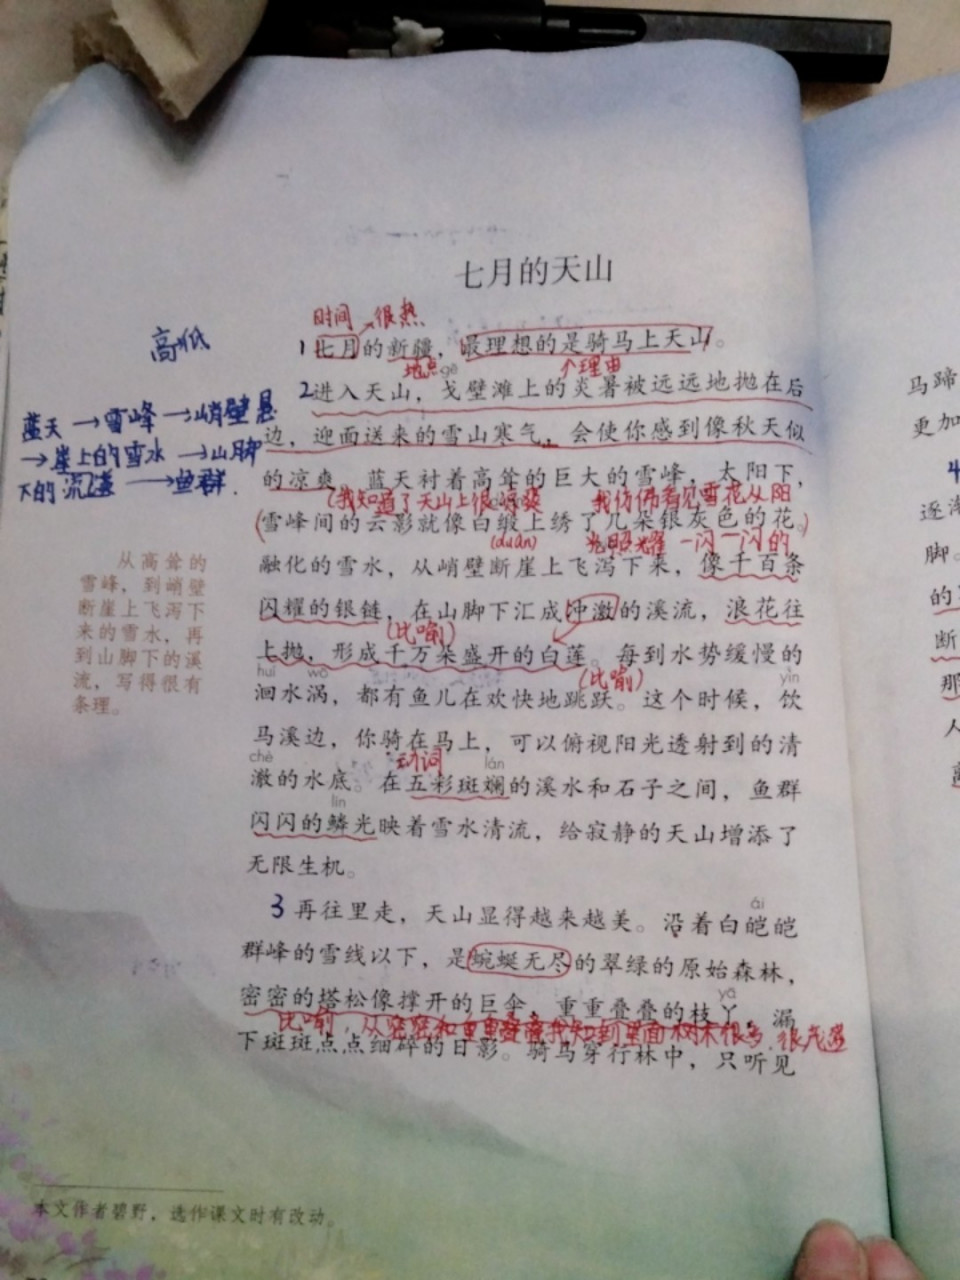 七月的天山
时间 很热
高 低
1七月的新疆，最理想的是骑马上天山。
地点 gē 个理由
2进入天山，戈壁滩上的炎暑被远远地抛在后
蓝天→雪峰→峭壁悬
边，迎面送来的雪山寒气，会使你感到像秋天似
→崖上的雪水→山脚
的凉爽。蓝天衬着高耸的巨大的雪峰，太阳下，
下的 →鱼群.
(我知道了天山上很凉爽 我仿佛看见雪花从阳
(雪峰间的云影就像白缎上绣了几朵银灰色的花。)
(duàn) 光照耀一闪一闪的
从高耸的
雪峰，到峭壁
断崖上飞泻下
来的雪水，再
到山脚下的溪
流，写得很有
条理。
融化的雪水，从峭壁断崖上飞泻下来，像千百条
闪耀的银链，在山脚下汇成冲激的溪流，浪花往
(比喻)
上抛，形成千万朵盛开的白莲。每到水势缓慢的
huí wō (比喻) yìn
洄水涡，都有鱼儿在欢快地跳跃。这个时候，饮
马溪边，你骑在马上，可以俯视阳光透射到的清
chè 动词 lán
澈的水底。在五彩斑斓的溪水和石子之间，鱼群
lín
闪闪的鳞光映着雪水清流，给寂静的天山增添了
无限生机。
ái
3再往里走，天山显得越来越美。沿着白皑皑
群峰的雪线以下，是蜿蜒无尽的翠绿的原始森林，
yā
密密的塔松像撑开的巨伞，重重叠叠的枝丫，漏
比喻，从密密和重重叠叠我知到里面树木很多.很茂
下斑斑点点细碎的日影。骑马穿行林中，只听见
本文作者碧野，选作课文时有改动。
马蹄
更加
4
逐渐
脚。
的
断
那
人